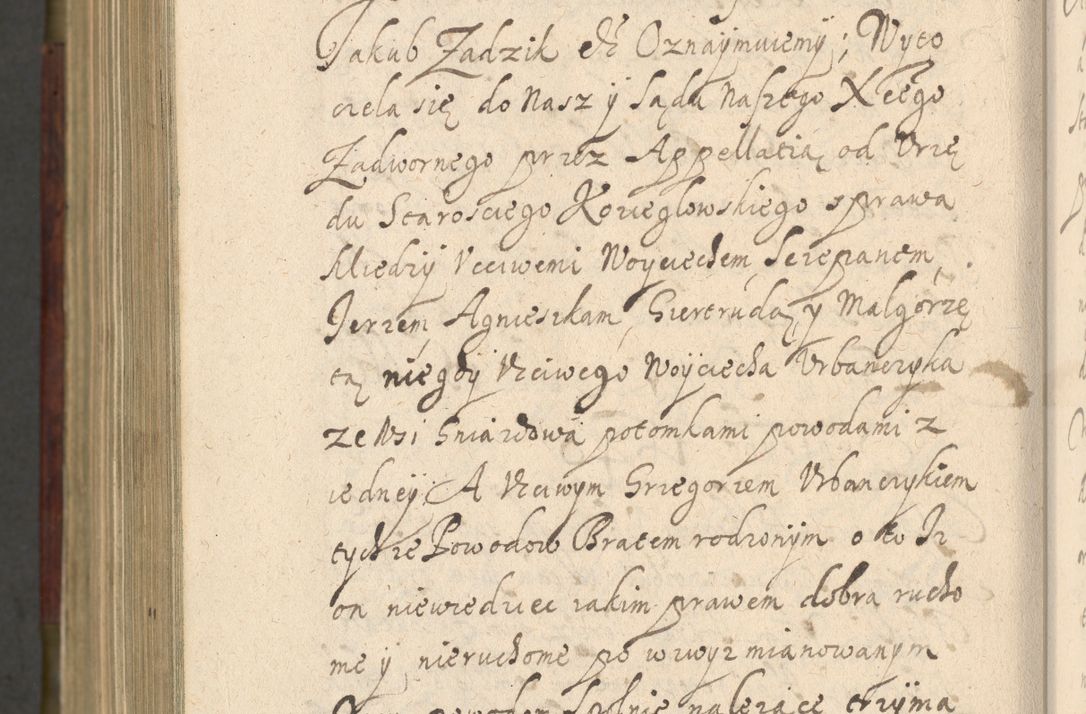 Jakub Zadzik etc Oznaÿmuiemÿ; Wyto
cięła się do Nasz ÿ Sądu Naszego Xcego
Zadwornego przez Appellatią od Vrzę
du Staroscięgo Kozieglowskięgo sprawa
Między Vcciwemi Woyciechem Sczepanem
Jerzem, Agnieszkam, Giertrudą, y Małgorzę
tą niegdÿ Vzciwego Woyciecha Urbanczyka
ze Wsi Gniazdowa potomkami powodami z
iednęÿ. A Vzciwym Grzegorzem Vrbanczykiem
tychże Powodow Bratem rodzonÿm o to Iz
on niewiedziec iakim prawem dobra rucho
me ÿ nieruchome po wwyzmianowanym
należące trzÿma